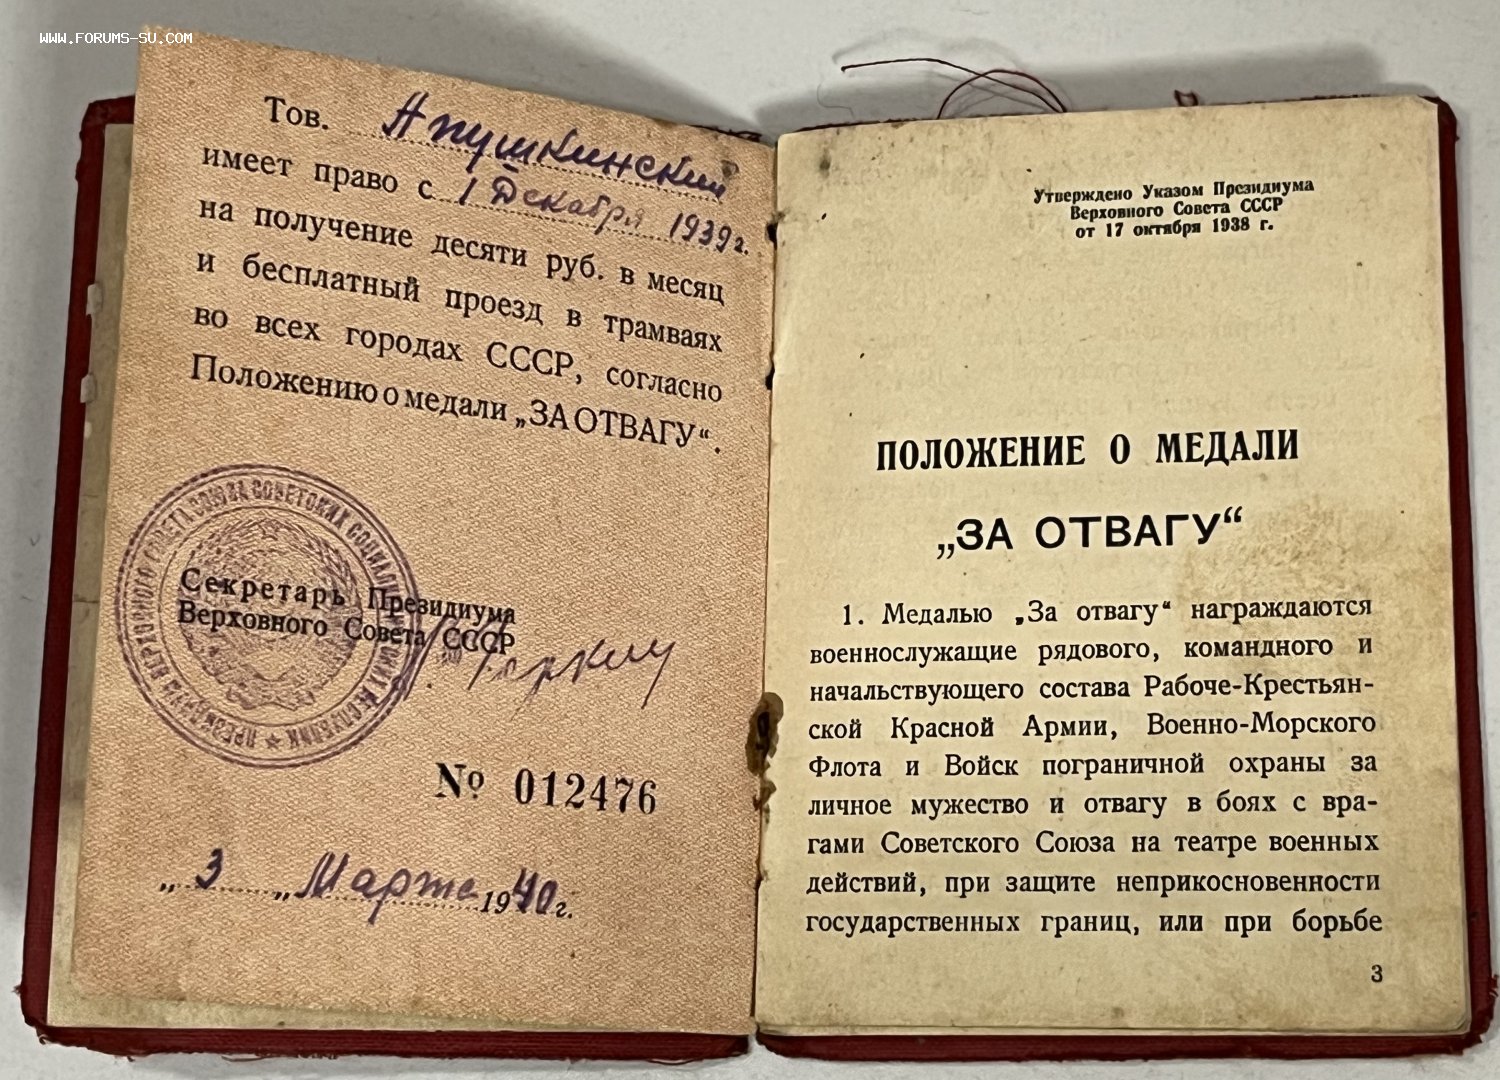 WWW.FORUMS-SU.COM
Тов. Апушкинский
имеет право с 1 Декабря 1939 г.
на получение десяти руб. в месяц
и бесплатный проезд в трамваях
во всех городах СССР, согласно
Положению о медали „ЗА ОТВАГУ“.
ПРЕЗИДИУМ ВЕРХОВНОГО СОВЕТА СОЮЗА СОВЕТСКИХ СОЦИАЛИСТИЧЕСКИХ РЕСПУБЛИК
Секретарь Президиума
Верховного Совета СССР
Горкин
№ 012476
„3„ Марта 1940 г.
Утверждено Указом Президиума
Верховного Совета СССР
от 17 октября 1938 г.
ПОЛОЖЕНИЕ О МЕДАЛИ
„ЗА ОТВАГУ“
1. Медалью „За отвагу“ награждаются
военнослужащие рядового, командного и
начальствующего состава Рабоче-Крестьян-
ской Красной Армии, Военно-Морского
Флота и Войск пограничной охраны за
личное мужество и отвагу в боях с вра-
гами Советского Союза на театре военных
действий, при защите неприкосновенности
государственных границ, или при борьбе
3